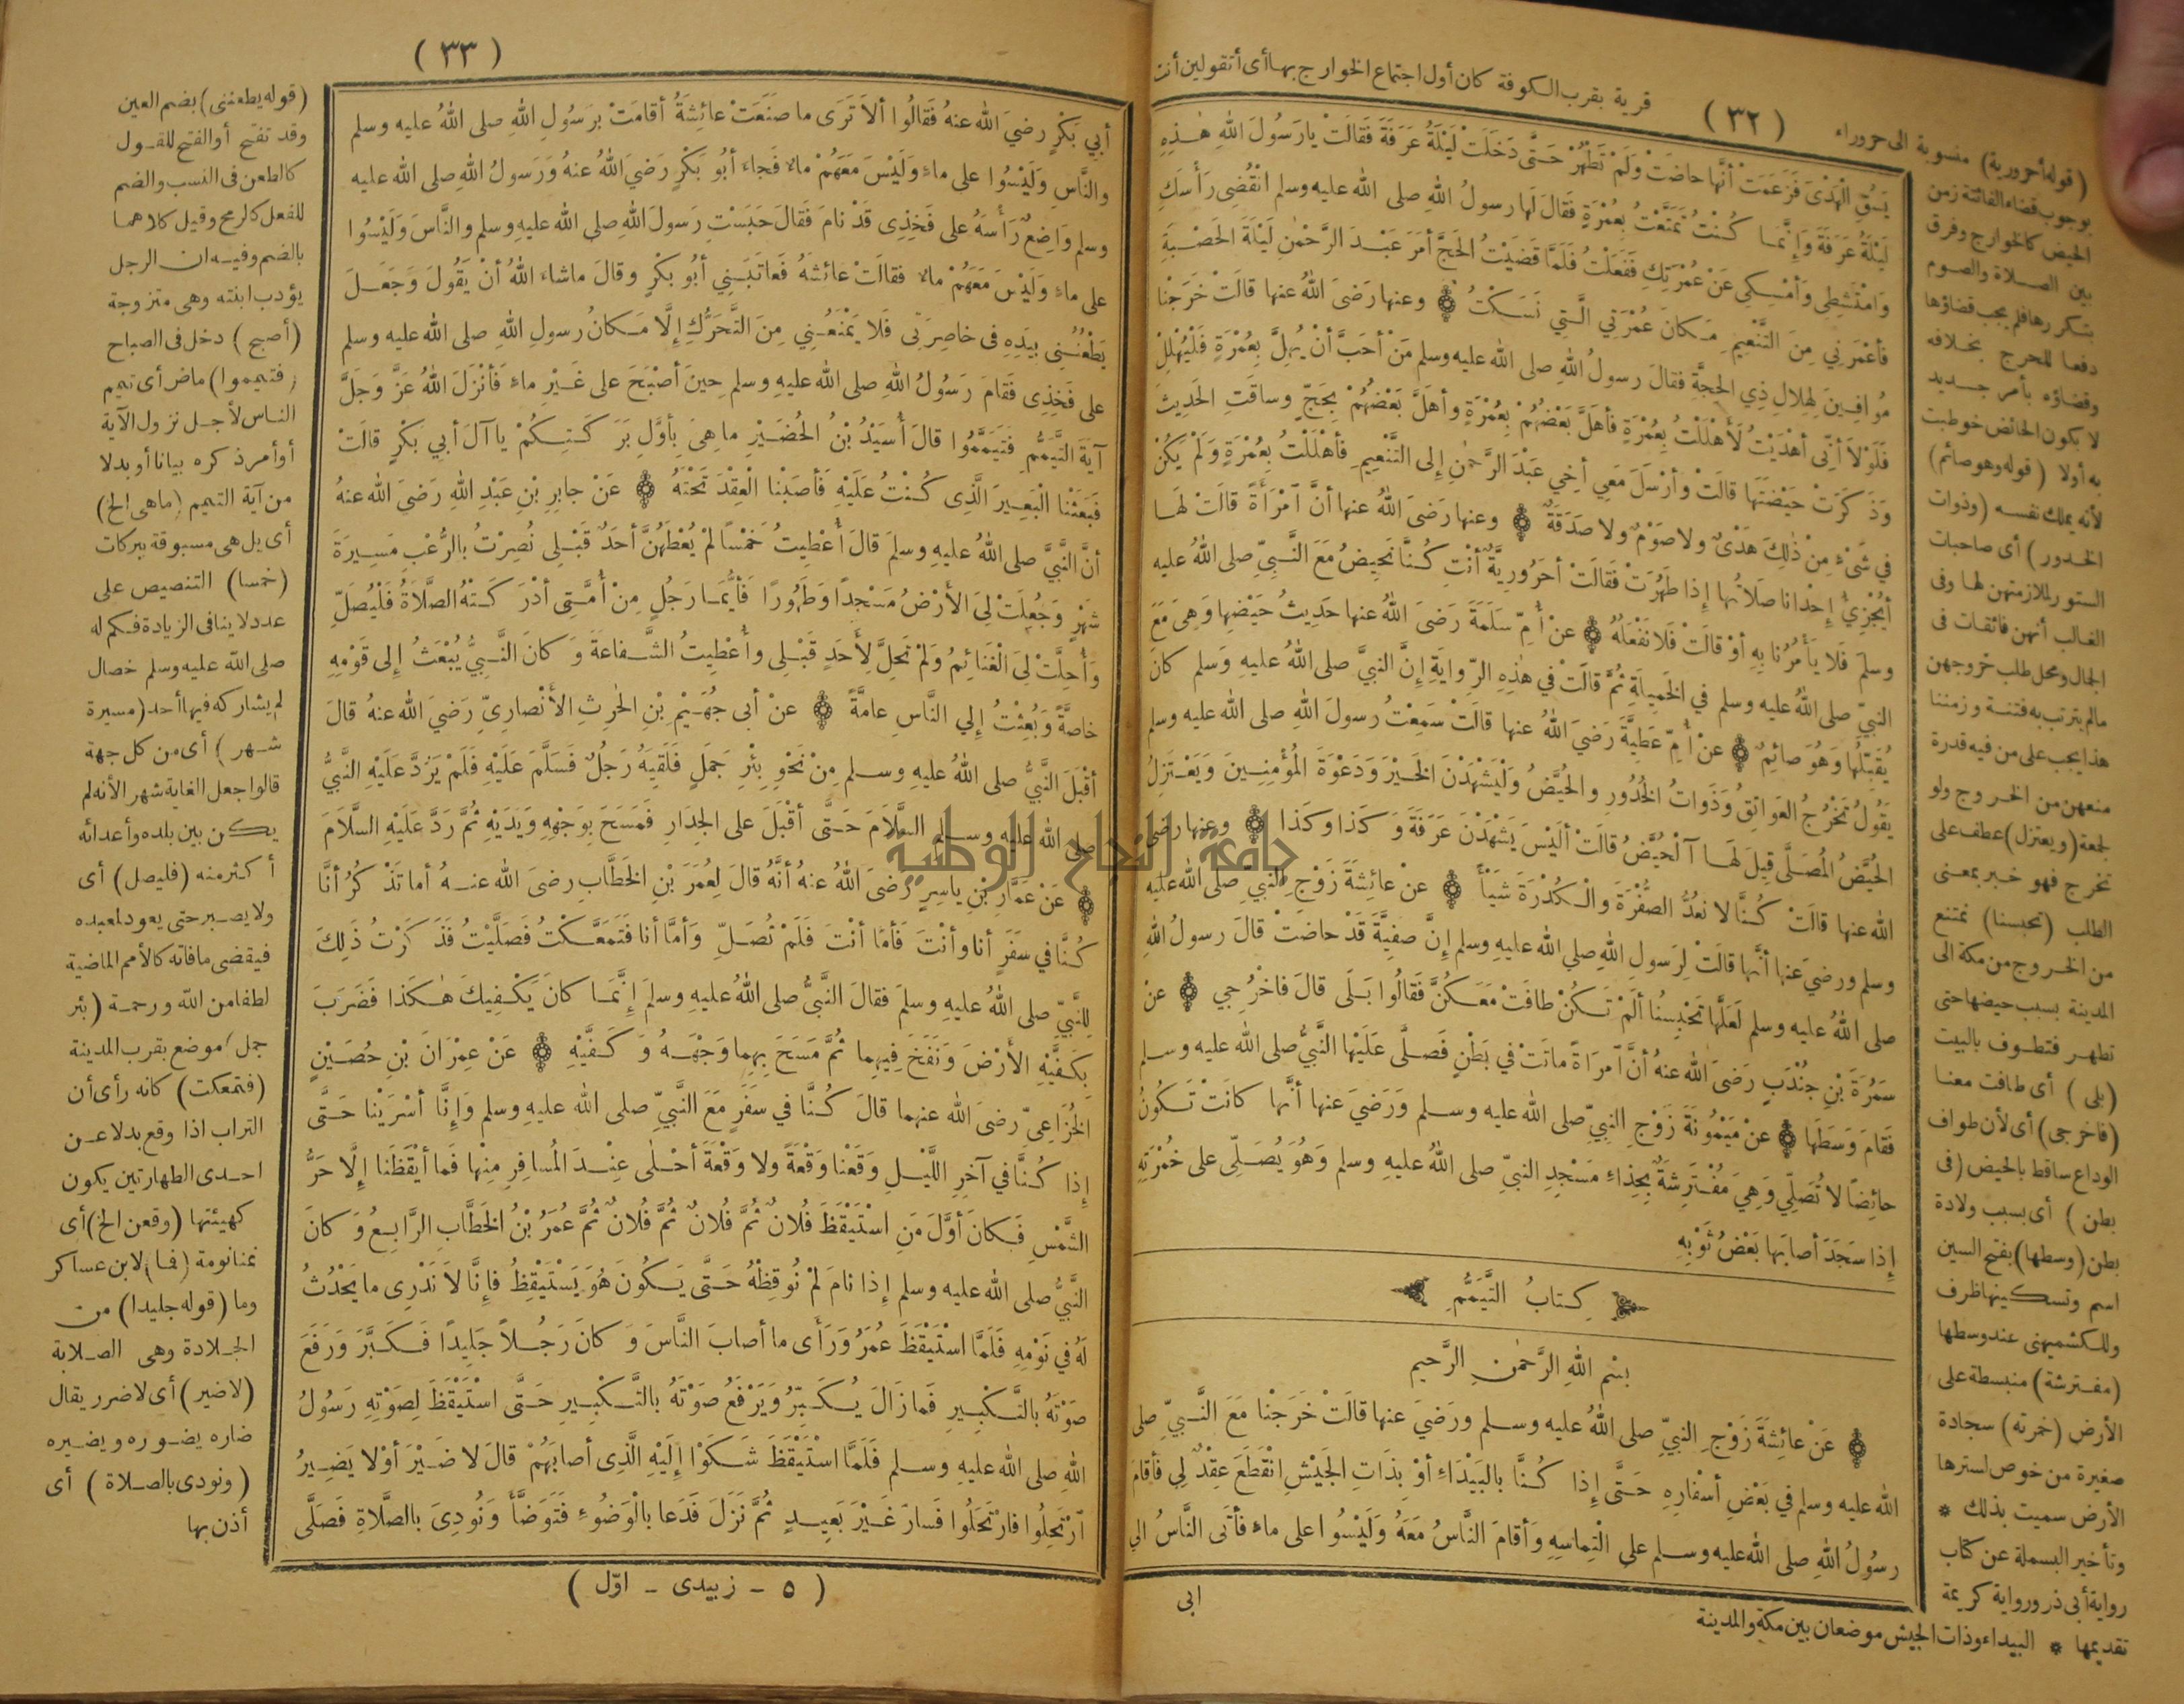 ( ٣٢ )
قرية بقرب الكوفة كان أول اجتماع الخوارج بها أى أتقولين أنت
يَسُقِ الْهَدْىَ فَزَعَمَتْ أنَّها حاضَتْ وَلَمْ تَطْهُرْ حَتَّى دَخَلَتْ لَيْلَةُ عَرَفَةَ فَقالَتْ يا رَسُولَ اللهِ هٰذِهِ
لَيْلَةُ عَرَفَةَ وَإِنَّمَا كُنْتُ تَمَتَّعْتُ بِعُمْرَةٍ فَقالَ لَها رسولُ اللهِ صلى الله عليه وسلم انْقُضِى رَأْسَكِ
وَامْتَشِطِى وَأمْسِكِي عَنْ عُمْرَتِكِ فَفَعَلْتُ فَلَمَّا قَضَيْتُ الحَجَّ أمَرَ عَبْدَ الرَّحْمٰنِ لَيْلَةَ الحَصْبَةِ
فأعْمَرَنِي مِنَ التَّنْعِيمِ مَكانَ عُمْرَتِي الَّتِي نَسَكْتُ ۞ وعنها رَضىَ اللهُ عنها قالَتْ خَرَجْنا
مُوافِينَ لِهِلالِ ذِي الحِجَّةِ فقالَ رسولُ اللهِ صلى الله عليه وسلم مَنْ أحَبَّ أنْ يُهِلَّ بِعُمْرَةٍ فَلْيُهْلِلْ
فَلَوْلاَ أنِّى أهْدَيْتُ لَأهْلَلْتُ بِعُمْرَةٍ فأهَلَّ بَعْضُهُمْ بِعُمْرَةٍ وأهَلَّ بَعْضُهُمْ بِحَجٍّ وساقَتِ الحَدِيثَ
وَذَكَرَتْ حَيْضَتَها قالَتْ وأرْسَلَ مَعِي أخِي عَبْدَ الرَّحمٰنِ إلى التَّنْعِيمِ فأهْلَلْتُ بِعُمْرَةٍ وَلَمْ يَكُنْ
في شَىْءٍ مِنْ ذٰلِكَ هَدْىٌ ولا صَوْمٌ ولا صَدَقَةٌ ۞ وعنها رَضىَ اللهُ عنها أنَّ امْرَأةً قالَتْ لَها
أيُجْزِي إحْدانا صَلاتُها إذا طَهُرَتْ فَقالَتْ أحَرُورِيَّةٌ أنْتِ كُنَّا نَحِيضُ مَعَ النَّبِيِّ صلى اللهُ عليه
وسلمَ فَلا يَأمُرُنا بِهِ أوْ قالَتْ فَلا نَفْعَلُهُ ۞ عنْ أُمِّ سَلَمَةَ رَضىَ اللهُ عنها حَدِيثُ حَيْضِها وَهِىَ مَعَ
النبيّ صلى اللهُ عليه وسلم في الخَمِيلَةِ ثُمَّ قالَتْ في هٰذِهِ الرِّوايَةِ إنَّ النبيَّ صلى اللهُ عليهِ وَسلم كانَ
يُقَبِّلُها وَهُوَ صائِمٌ ۞ عنْ أُمِّ عَطِيَّةَ رَضىَ اللهُ عنها قالَتْ سَمِعْتُ رسولَ اللهِ صلى الله عليه وسلم
يَقُولُ تَخْرُجُ العَواتِقُ وَذَواتُ الخُدُورِ والحُيَّضُ وَلْيَشْهَدْنَ الخَيْرَ وَدَعْوَةَ المُؤْمِنِينَ وَيَعْتَزِلُ
الحُيَّضُ المُصَلَّى قِيلَ لَها آلْحُيَّضُ قالَتْ ألَيْسَ يَشْهَدْنَ عَرَفَةَ وَكَذا وَكَذا ۞ وعنها رضى
الله عنها قالَتْ كُنَّا لا نَعُدُّ الصُّفْرَةَ والْكُدْرَةَ شَيْأً ۞ عنْ عائِشَةَ زَوْجِ النبيِّ صلى الله عليه
وسلم ورضىَ عنها أنَّها قالَتْ لِرَسولِ اللهِ صلى الله عليه وسلم إنَّ صفِيَّةَ قَدْ حاضَتْ قالَ رسولُ اللهِ
صلى اللهُ عليه وسلم لَعَلَّها تَحْبِسُنا ألَمْ تَكُنْ طافَتْ مَعَكُنَّ فَقالُوا بَلَى قالَ فاخْرُجِي ۞ عنْ
سَمُرَةَ بْنِ جُنْدَبٍ رَضىَ الله عنهُ أنَّ امْرَأةً ماتَتْ في بَطْنٍ فَصَلَّى عَلَيْها النَّبيُّ صلى الله عليه وسلم
فَقامَ وَسَطَها ۞ عنْ مَيْمُونَةَ زَوْجِ النبيِّ صلى الله عليه وسلم وَرَضىَ عنها أنَّها كانَتْ تَكُونُ
حائِضًا لا تُصَلِّي وَهِيَ مُفْتَرِشَةٌ بِحِذاءِ مَسْجِدِ النبيِّ صلى اللهُ عليهِ وسلم وَهُوَ يُصَلِّى على خُمْرَتِهِ
إذا سَجَدَ أصابَها بَعْضُ ثَوْبِهِ
كِتابُ التَّيَمُّمِ
بِسْمِ اللهِ الرَّحمٰنِ الرَّحيمِ
۞ عَنْ عائِشَةَ زَوْجِ النبيِّ صلى اللهُ عليه وسلم ورَضىَ عنها قالَتْ خَرَجْنا مَعَ النَّبيِّ صلى
الله عليه وسلم في بَعْضِ أسْفارِهِ حَتَّى إذا كُنَّا بالبَيْداءِ أوْ بِذَاتِ الجَيْشِ انْقَطَعَ عِقْدٌ لِي فَأقامَ
رسُولُ اللهِ صلى الله عليه وسلم على الْتِماسِهِ وَأقامَ النَّاسُ مَعَهُ وَلَيْسُوا على ماءٍ فَأتَى النَّاسُ الى
ابى
(قوله أحرورية) منسوبة الى حروراء
بوجوب قضاء الفائتة زمن
الحيض كالخوارج وفرق
بين الصلاة والصوم
بتكررها فلم يجب قضاؤها
دفعا للحرج بخلافه
وقضاؤه بأمر جديد
لا يكون الحائض خوطبت
به أولا (قوله وهو صائم)
لأنه يملك نفسه (وذوات
الخدور) أى صاحبات
الستور لملازمتهن لها وفى
الغالب أنهن فائقات فى
الجمال ومحل طلب خروجهن
مالم يترتب به فتنة وزمننا
هذا يجب على من فيه قدرة
منعهن من الخروج ولو
لجمعة (ويعتزل) عطف على
تخرج فهو خبر بمعنى
الطلب (تحبسنا) تمتنع
من الخروج من مكة الى
المدينة بسبب حيضها حتى
تطهر فتطوف بالبيت
(بلى) أى طافت معنا
(فاخرجى) أى لأن طواف
الوداع ساقط بالحيض (فى
بطن) أى بسبب ولادة
بطن (وسطها) بفتح السين
اسم وتسكينها ظرف
وللكشميهنى عند وسطها
(مفترشة) منبسطة على
الأرض (خمرته) سجادة
صغيرة من خوص لسترها
الأرض سميت بذلك *
وتأخير البسملة عن كتاب
رواية أبى ذر ورواية كريمة
تقديمها * البيداء وذات الجيش موضعان بين مكة والمدينة
( ٣٣ )
أبي بَكْرٍ رضىَ الله عنهُ فَقالُوا ألاَ تَرَى ما صَنَعَتْ عائِشَةُ أقامَتْ بِرَسُولِ اللهِ صلى اللهُ عليه وسلم
والنَّاسِ وَلَيْسُوا على ماءٍ وَلَيْسَ مَعَهُمْ ماءٌ فَجاءَ أبُو بَكْرٍ رَضىَ اللهُ عنهُ وَرَسولُ اللهِ صلى الله عليه
وسلم وَاضِعٌ رَأسَهُ على فَخِذِى قَدْ نامَ فَقالَ حَبَسْتِ رَسولَ اللهِ صلى الله عليهِ وسلم والنَّاسَ وَلَيْسُوا
على ماءٍ وَلَيْسَ مَعَهُمْ ماءٌ فقالَتْ عائشَهُ فَعاتَبَنِي أبُو بَكْرٍ وقالَ ماشاءَ اللهُ أنْ يَقُولَ وَجَعَلَ
يَطْعُنُنِى بِيَدِهِ فى خاصِرَتِى فَلَا يَمْنَعُنِي مِنَ التَّحَرُّكِ إِلَّا مَكانُ رسولِ اللهِ صلى الله عليه وسلم
على فَخِذِى فَقامَ رَسُولُ اللهِ صلى الله عليهِ وسلم حِينَ أصْبَحَ على غَيْرِ ماءٍ فَأنْزَلَ اللهُ عَزَّ وَجَلَّ
آيَةَ التَّيَمُّمِ فَتَيَمَّمُوا قالَ أُسَيْدُ بْنُ الحُضَيْرِ ما هِىَ بِأوَّلِ بَرَكَتِكُمْ يا آلَ أبي بَكْرٍ قالَتْ
فَبَعَثْنا الْبَعِيرَ الَّذِى كُنْتُ عَلَيْهِ فَأصَبْنا الْعِقْدَ تَحْتَهُ ۞ عَنْ جابِرِ بْنِ عَبْدِ اللهِ رَضىَ الله عنهُ
أنَّ النَّبيَّ صلى اللهُ عليهِ وسلمَ قالَ أُعْطِيتُ خَمْساً لَمْ يُعْطَهُنَّ أحَدٌ قَبْلِى نُصِرْتُ بالرُّعْبِ مَسِيرَةَ
شَهْرٍ وَجُعِلَتْ لِىَ الأَرْضُ مَسْجِداً وَطَهُورًا فَأيُّمَا رَجُلٍ مِنْ أُمَّتِى أدْرَكَتْهُ الصَّلاةُ فَلْيُصَلِّ
وَأُحِلَّتْ لِىَ الْغَنَائِمُ وَلَمْ تَحِلَّ لِأَحَدٍ قَبْلِى وأُعْطِيتُ الشَّفاعَةَ وَكانَ النَّبيُّ يُبْعَثُ إِلى قَوْمِهِ
خاصَّةً وَبُعِثْتُ إِلي النَّاسِ عامَّةً ۞ عنْ أبى جُهَيْمِ بْنِ الحٰرِثِ الأَنْصارِيِّ رَضىَ الله عنهُ قالَ
أقْبَلَ النَّبيُّ صلى اللهُ عليهِ وسلم مِنْ نَحْوِ بِئْرِ جَمَلٍ فَلَقِيَهُ رَجُلٌ فَسَلَّمَ عَلَيْهِ فَلَمْ يَرُدَّ عَلَيْهِ النَّبيُّ
صلى الله عليه وسلم السَّلَامَ حَتَّى أقْبَلَ على الجِدَارِ فَمَسَحَ بِوَجْهِهِ وَيَدَيْهِ ثُمَّ رَدَّ عَلَيْهِ السَّلَامَ
۞ عَنْ عَمَّارِ بْنِ ياسِرٍ رَضىَ اللهُ عنهُ أنَّهُ قالَ لِعُمَرَ بْنِ الخَطَّابِ رضىَ الله عنهُ أما تَذْكُرُ أنَّا
كُنَّا في سَفَرٍ أنا وأنْتَ فَأمَّا أنْتَ فَلَمْ تُصَلِّ وَأمَّا أنا فَتَمَعَّكْتُ فَصَلَّيْتُ فَذَكَرْتُ ذَلِكَ
لِلنَّبيّ صلى اللهُ عليهِ وسلمَ فقالَ النَّبيُّ صلى اللهُ عليهِ وسلمَ إِنَّمَا كانَ يَكْفِيكَ هٰكَذا فَضَرَبَ
بِكَفَّيْهِ الأَرْضَ وَنَفَخَ فِيهِما ثُمَّ مَسَحَ بِهِما وَجْهَهُ وَكَفَّيْهِ ۞ عَنْ عِمْرَانَ بْنِ حُصَيْنٍ
الخُزَاعِىِّ رضىَ الله عنهما قالَ كُنَّا في سفَرٍ مَعَ النَّبيِّ صلى الله عليهِ وسلم وَإِنَّا أسْرَيْنا حَتَّى
إِذا كُنَّا في آخِرِ اللَّيْلِ وَقَعْنا وَقْعَةً ولا وَقْعَةَ أحْلٰى عِنْدَ المُسافِرِ مِنْها فَما أيْقَظَنا إِلَّا حَرُّ
الشَّمْسِ فَكانَ أوَّلَ مَنِ اسْتَيْقَظَ فُلانٌ ثُمَّ فُلانٌ ثُمَّ فُلانٌ ثُمَّ عُمَرُ بْنُ الخَطَّابِ الرَّابِعُ وَكانَ
النَّبيُّ صلى الله عليه وسلم إِذا نامَ لَمْ نُوقِظْهُ حَتَّى يَكُونَ هُوَ يَسْتَيْقِظُ فإِنَّا لاَ نَدْرِى ما يَحْدُثُ
لَهُ في نَوْمِهِ فَلَمَّا اسْتَيْقَظَ عُمَرُ وَرَأى ما أصابَ النَّاسَ وَكانَ رَجُلاً جَلِيدًا فَكَبَّرَ وَرَفَعَ
صَوْتَهُ بالتَّكْبِيرِ فَما زَالَ يُكَبِّرُ وَيَرْفَعُ صَوْتَهُ بالتَّكْبِيرِ حَتَّى اسْتَيْقَظَ لِصَوْتِهِ رَسُولُ
اللهِ صلى الله عليهِ وسلم فَلَمَّا اسْتَيْقَظَ شَكَوْا إِلَيْهِ الَّذِى أصابَهُمْ قالَ لا ضَيْرَ أوْ لا يَضِيرُ
ارْتَحِلُوا فارْتَحَلُوا فَسارَ غَيْرَ بَعِيدٍ ثُمَّ نَزَلَ فَدَعا بالْوَضُوءِ فَتَوَضَّأَ وَنُودِىَ بالصَّلاةِ فَصَلَّى
( ٥ - زبيدى - اوّل )
(قوله يطعننى) بضم العين
وقد تفتح أو الفتح للقول
كالطعن فى النسب والضم
للفعل كالرمح وقيل كلاهما
بالضم وفيه ان الرجل
يؤدب ابنته وهى متزوجة
(أصبح) دخل فى الصباح
(فتيمموا) ماض أى تيمم
الناس لأجل نزول الآية
أو أمر ذكره بيانا أو بدلا
من آية التيمم (ما هى الخ)
أى بل هى مسبوقة ببركات
(خمسا) التنصيص على
عدد لا ينافى الزيادة فكم له
صلى الله عليه وسلم خصال
لم يشاركه فيها أحد (مسيرة
شهر) أى من كل جهة
قالوا جعل الغاية شهرا لأنه لم
يكن بين بلده وأعدائه
أكثر منه (فليصل) أى
ولا يصبر حتى يعود لمعبده
فيقضى ما فاته كالأمم الماضية
لطفا من الله ورحمة (بئر
جمل) موضع بقرب المدينة
(فتمعكت) كانه رأى أن
التراب اذا وقع بدلا عن
احدى الطهارتين يكون
كهيئتها (وقعن الخ) أى
نمنا نومة (فما) لابن عساكر
وما (قوله جليدا) من
الجلادة وهى الصلابة
(لا ضير) أى لا ضرر يقال
ضاره يضوره ويضيره
(ونودى بالصلاة) أى
أذن بها
جامعة النجاح الوطنية